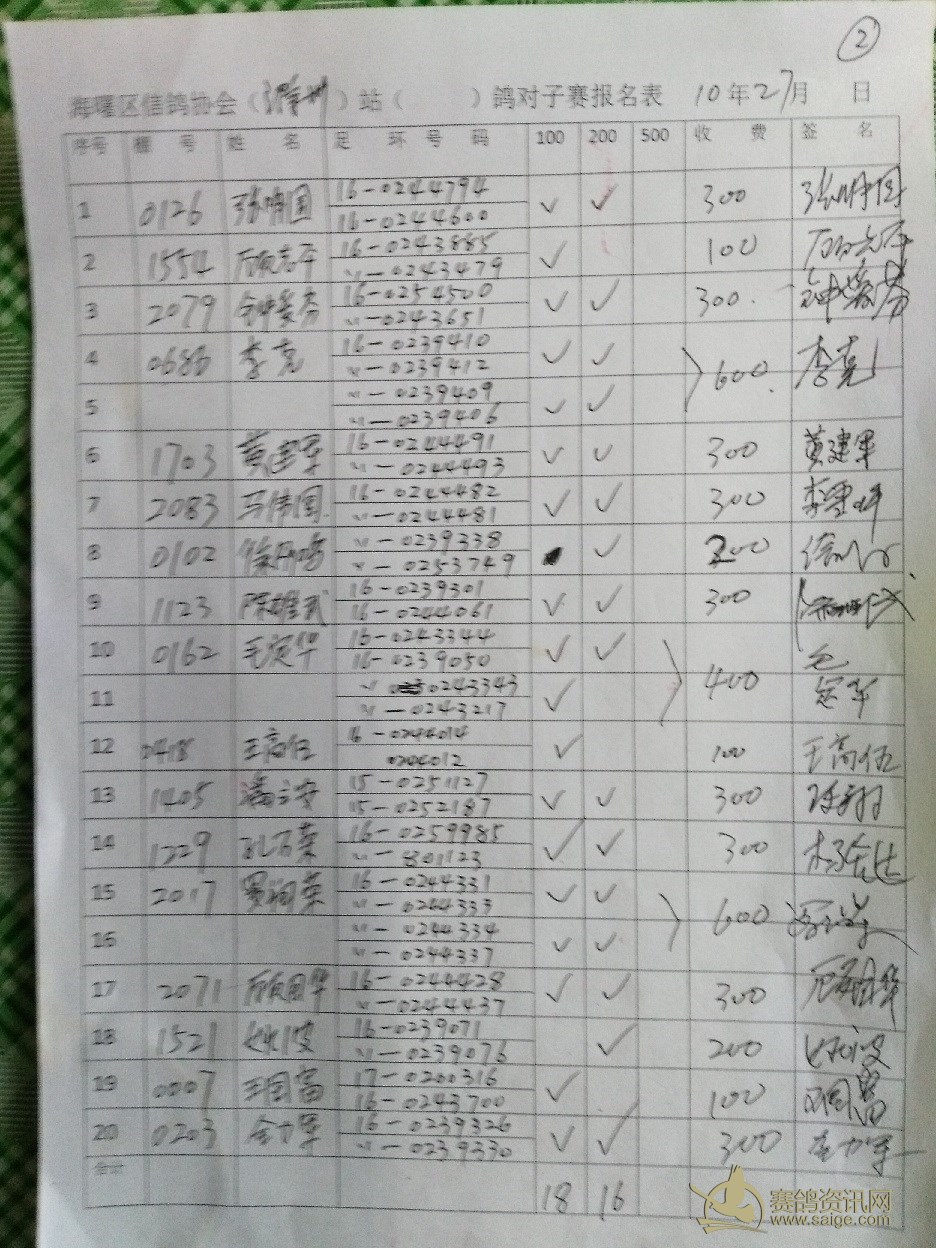 ②
海曙区信鸽协会（滁州）站（ ）鸽对子赛报名表 10年27月 日
序号 棚号 姓名 足环号码 100 200 500 收费 签名
1 0126 张明国 16-0244794 16-0244600 ✓ ✓ 300 张明国
2 1554 16-0243885 〃-0243479 ✓ 100
3 2079 钟爱芬 16-0254500 〃-0243651 ✓ ✓ 300. 钟爱芬
4 0686 李克 16-0239410 〃-0239412 ✓ ✓ 600 李克
5 〃-0239409 〃-0239406 ✓ ✓
6 1703 黄建军 16-0244491 〃-0244493 ✓ ✓ 300 黄建军
7 2083 马伟国 16-0244482 〃-0244481 ✓ ✓ 300
8 0102 〃-0239338 〃-0253749 ✓ 200
9 1123 陈雄武 16-0239301 16-0244061 ✓ ✓ 300
10 0162 毛定华 16-0243344 16-0239050 ✓ ✓ 400 毛定华
11 〃 0243343 〃-0243217 ✓
12 0418 王高伍 16-0244014 0244012 ✓ 100 王高伍
13 1405 潘立安 15-0251127 15-0252187 ✓ ✓ 300
14 1229 孔万荣 16-0259985 〃-801123 ✓ ✓ 300
15 2017 16-0244331 〃-0244333 ✓ ✓ 600
16 〃-0244334 〃-0244337 ✓ ✓
17 2071 16-0244428 〃-0244437 ✓ ✓ 300
18 1521 姚波 16-0239071 〃-0239076 ✓ 200
19 0007 王国富 17-0200316 16-0243700 ✓ 100 王国富
20 0203 金力军 16-0239326 〃-0239330 ✓ ✓ 300 金力军
合计 18 16
赛鸽资讯网
www.saige.com